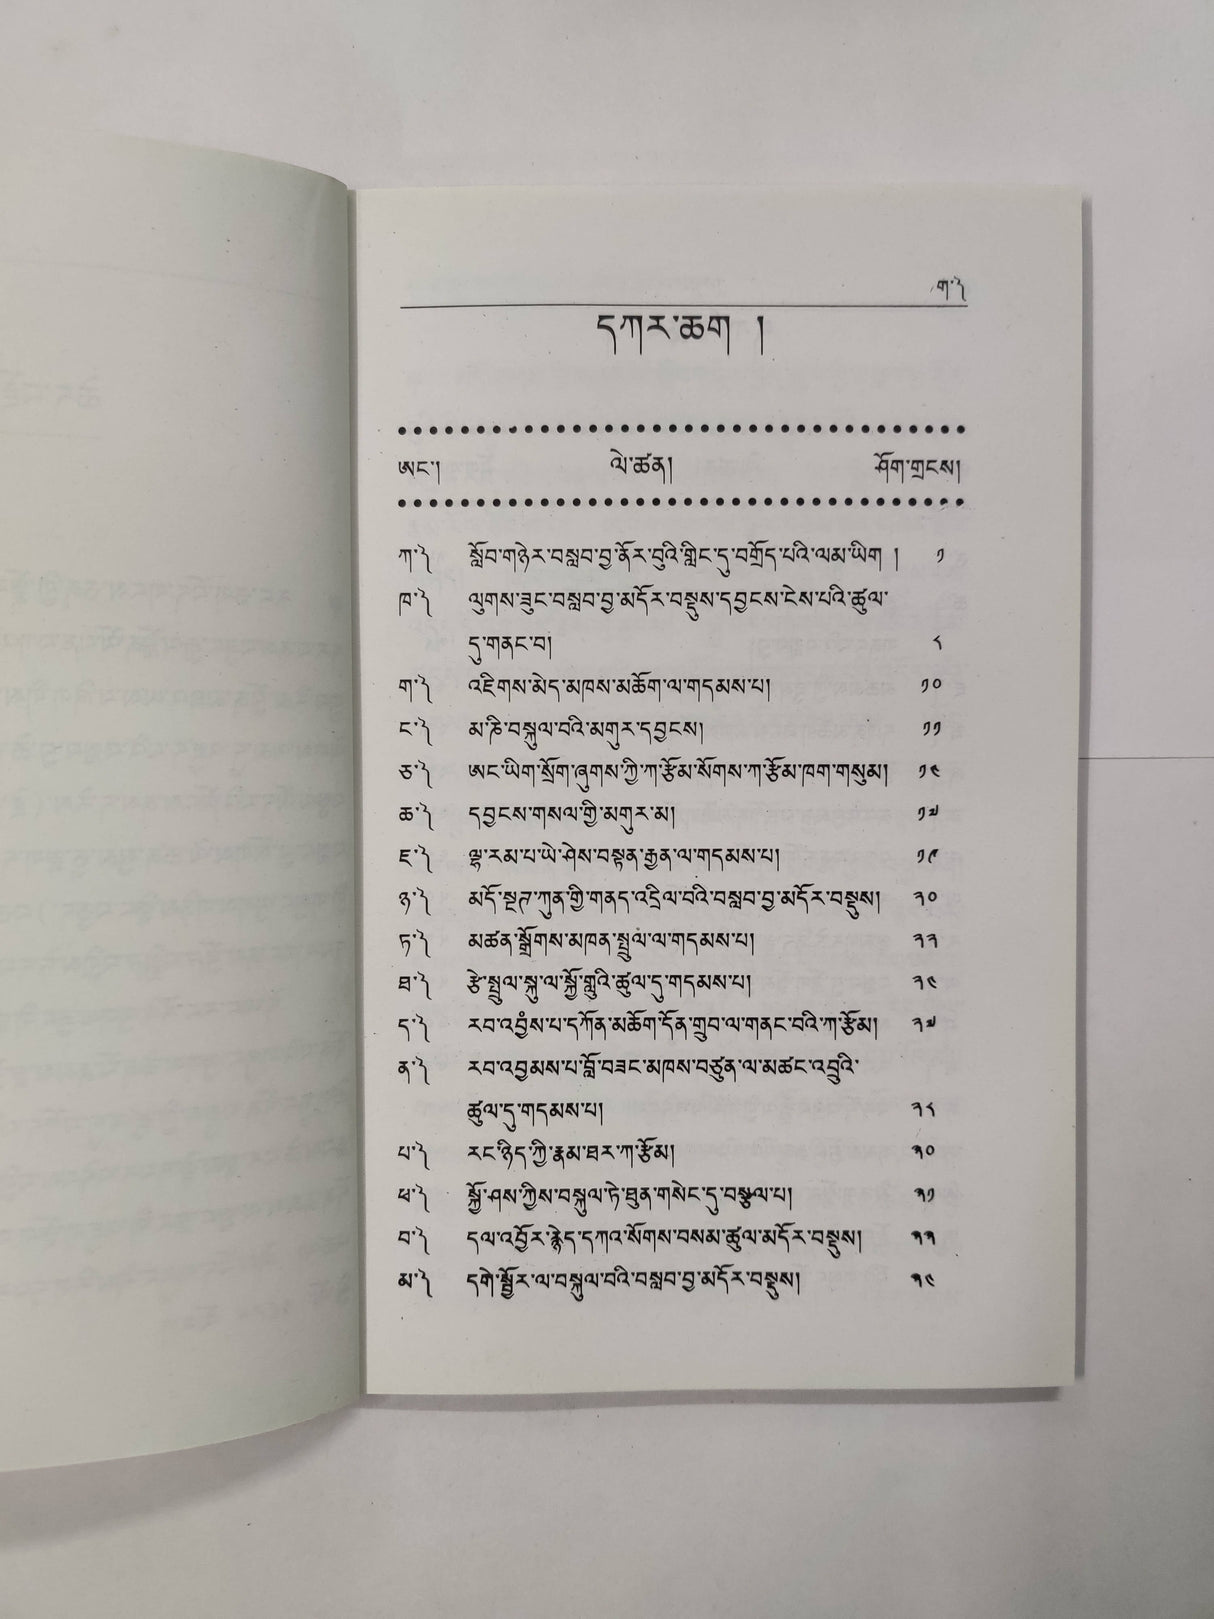 ག༽
དཀར་ཆག །
ཨང་། ལེ་ཚན། ཤོག་གྲངས།
ཀ༽ སློབ་གཉེར་བསླབ་བྱ་ནོར་བུའི་གླིང་དུ་བགྲོད་པའི་ལམ་ཡིག ། ༡
ཁ༽ ལུགས་ཟུང་བསླབ་བྱ་མདོར་བསྡུས་དབྱངས་ངེས་པའི་ཚུལ་
དུ་གནང་བ། ༨
ག༽ འཇིགས་མེད་མཁས་མཆོག་ལ་གདམས་པ། ༡༠
ང༽ མ་ཎི་བསྐུལ་བའི་མགུར་དབྱངས། ༡༡
ཅ༽ ཨང་ཡིག་སྲོག་ཞུགས་ཀྱི་ཀ་རྩོམ་སོགས་ཀ་རྩོམ་ཁག་གསུམ། ༡༤
ཆ༽ དབྱངས་གསལ་གྱི་མགུར་མ། ༡༧
ཇ༽ ལྷ་རམ་པ་ཡེ་ཤེས་བསྟན་རྒྱན་ལ་གདམས་པ། ༡༩
ཉ༽ མདོ་སྔཊ་ཀུན་གྱི་གནད་འདྲིལ་བའི་བསླབ་བྱ་མདོར་བསྡུས། ༢༠
ཏ༽ མཚན་སྒྲོགས་མཁན་སྤྲུལ་ལ་གདམས་པ། ༢༢
ཐ༽ རྩེ་སྤྲུལ་སྐུ་ལ་སྐྱོ་གླུའི་ཚུལ་དུ་གདམས་པ། ༢༤
ད༽ རབ་འབྱཾས་པ་དཀོན་མཆོག་དོན་གྲུབ་ལ་གནང་བའི་ཀ་རྩོམ། ༢༧
ན༽ རབ་འབྱམས་པ་བློ་བཟང་མཁས་བཙུན་ལ་མཚང་འབྲུའི་
ཚུལ་དུ་གདམས་པ། ༢༨
པ༽ རང་ཉིད་ཀྱི་རྣམ་ཐར་ཀ་རྩོམ། ༣༠
ཕ༽ སྐྱོ་ཤས་ཀྱིས་བསྐུལ་ཏེ་ཐུན་གསེང་དུ་བསྩལ་པ། ༣༡
བ༽ དལ་འབྱོར་རྙེད་དཀའ་སོགས་བསམ་ཚུལ་མདོར་བསྡུས། ༣༣
མ༽ དགེ་སྦྱོར་ལ་བསྐུལ་བའི་བསླབ་བྱ་མདོར་བསྡུས། ༣༤